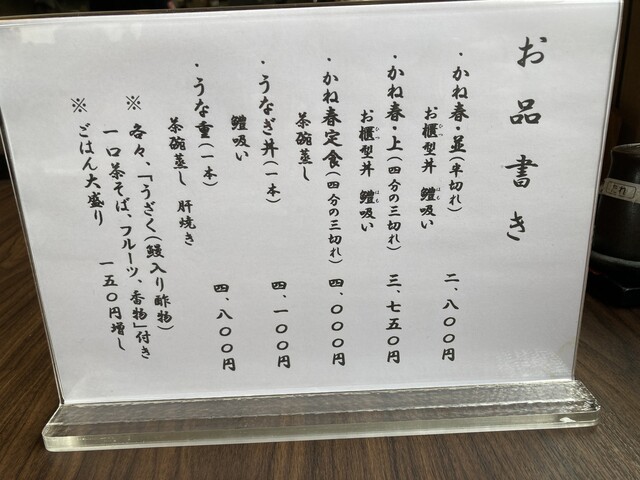 お品書き
・かね春・並(半切れ) 二、八〇〇円
お櫃型丼 鱧吸い
・かね春・上(四分の三切れ) 三、七五〇円
お櫃型丼 鱧吸い
・かね春定食(四分の三切れ) 四、〇〇〇円
茶碗蒸し
・うなぎ丼(一本) 四、一〇〇円
鱧吸い
・うな重(一本) 四、八〇〇円
茶碗蒸し 肝焼き
※各々、「うざく(鰻入り酢物)
一口茶そば、フルーツ、香物」付き
※ごはん大盛り 一五〇円増し
たれ